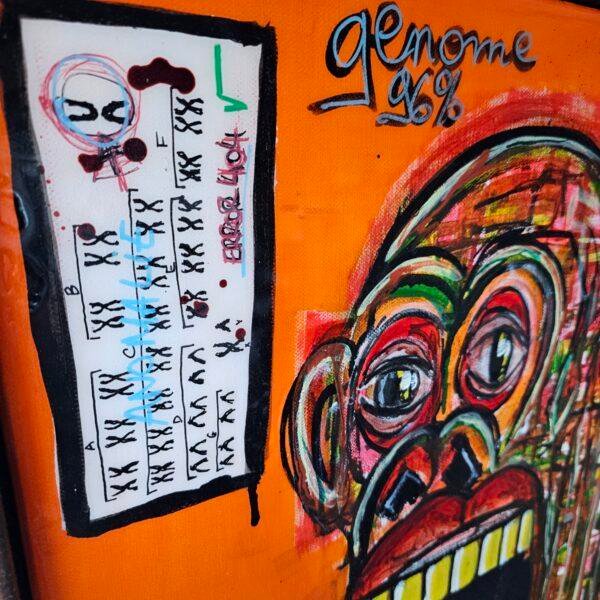 genome
96%
A
B
C
ANOMALIE
D
E
F
G
ERROR 404